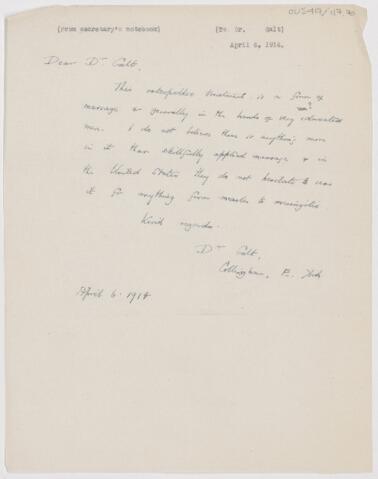 CUS417/117.70
(From secretary's notebook) (To Dr. Galt)
April 6, 1914.
Dear Dr Galt,
This osteopathic treatment is a form of
massage & generally in the hands of very uneducated
men. I do not believe there is anything more
in it than skilfully applied massage & in
the United States they do not hesitate to use
it for anything from measles to meningitis
Kind regards.
Dr Galt,
P.
April 6. 1914